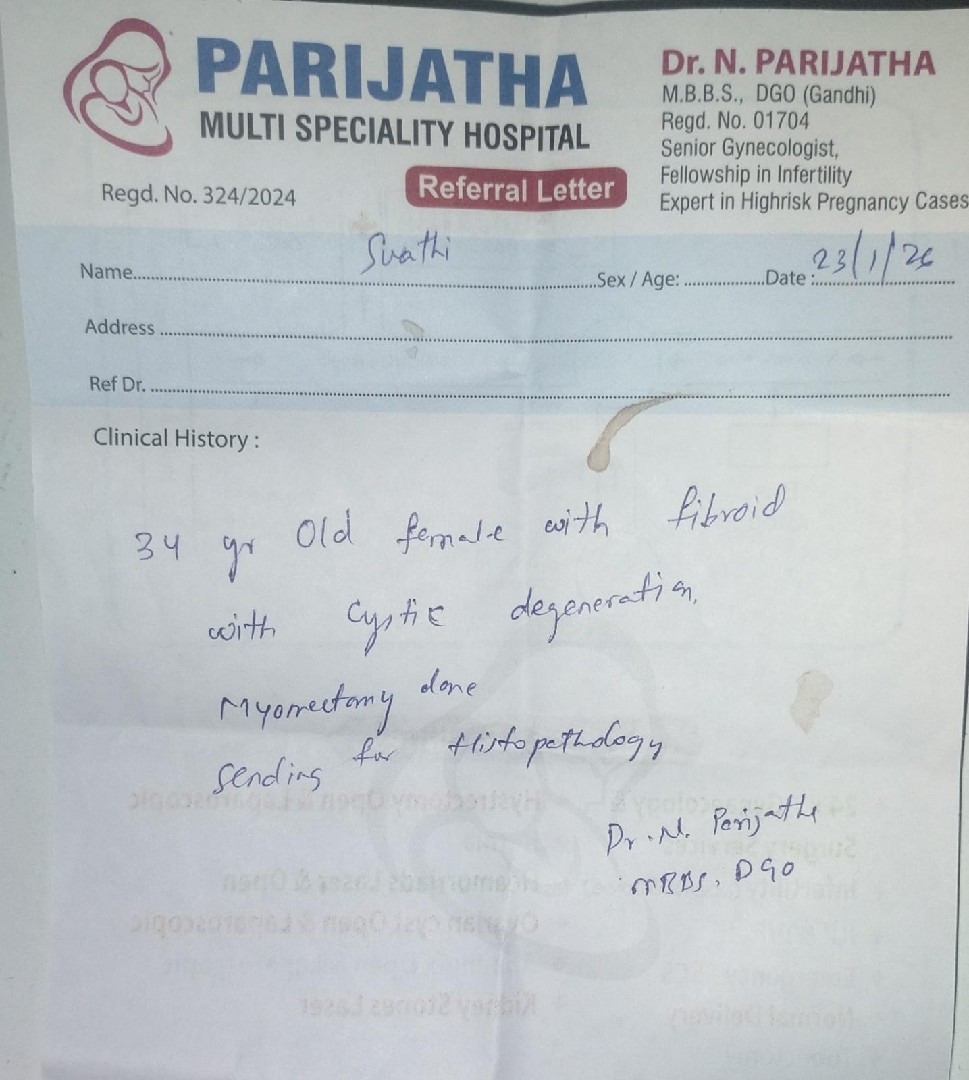 PARIJATHA
MULTI SPECIALITY HOSPITAL
Regd. No. 324/2024
Referral Letter
Dr. N. PARIJATHA
M.B.B.S., DGO (Gandhi)
Regd. No. 01704
Senior Gynecologist,
Fellowship in Infertility
Expert in Highrisk Pregnancy Cases
Name.......... Swathi ..........Sex / Age: ..........Date : 23/1/26
Address ..........
Ref Dr. ..........
Clinical History :
34 yr Old female with fibroid
with Cystic degeneration,
Myomectomy done
Sending for Histopathology
Dr. N. Parijatha
MBBS, DGO